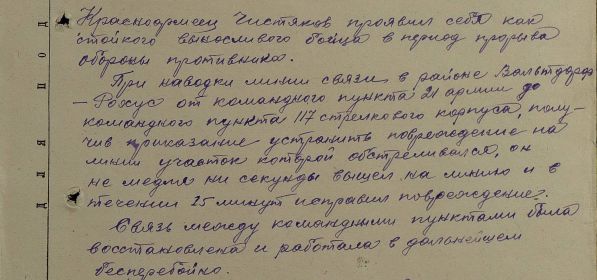 Красноармеец Чистяков проявил себя как
стойкого выносливого бойца в период прорыва
обороны противника.
При наводки линии связи в районе Вальтдорф
— Рохус от командного пункта 21 армии до
командного пункта 117 стрелкового корпуса, полу-
чив приказание устранить повреждение на
линии участок которой обстреливался, он
не медля ни секунды вышел на линию и в
течении 25 минут исправил повреждение.
Связь между командными пунктами была
восстановлена и работала в дальнейшем
бесперебойно.
ДЛЯ ПОД